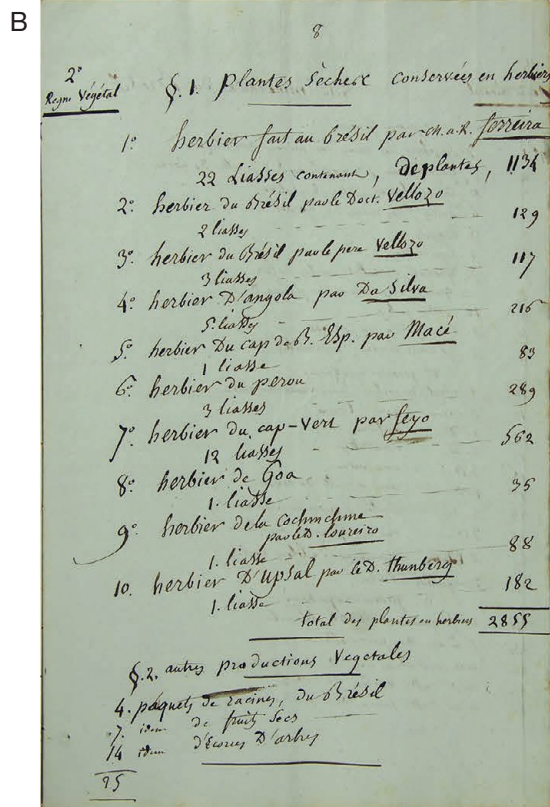 B
8
2°
Regne Végétal
§. 1. plantes Sèches conservées en herbiers
1° herbier fait au Brésil par ch. a. R. ferreira
22 Liasses contenant, de plantes, 1134
2° herbier du Brésil par le Doct. Vellozo
2 liasses 129
3° herbier du Brésil par le pere Vellozo
3 liasses 117
4° herbier D'angola par Da Silva
5 liasses 216
5° herbier Du cap de B. Esp. par Macé
1 liasse 83
6° herbier du perou
3 liasses 289
7° herbier du cap-Vert par feyo
12 liasses 562
8° herbier de Goa
1. liasse 35
9° herbier de la Cochinchine
par le D. loureiro
1. liasse 88
10. herbier D'Upsal par le D. thunberg
1. liasse 182
total des plantes en herbiers 2855
§. 2. autres productions Vegetales
4. paquets de racines, du Brésil
7. idem de fruits Secs
14 idem d'Ecorces D'arbres
25